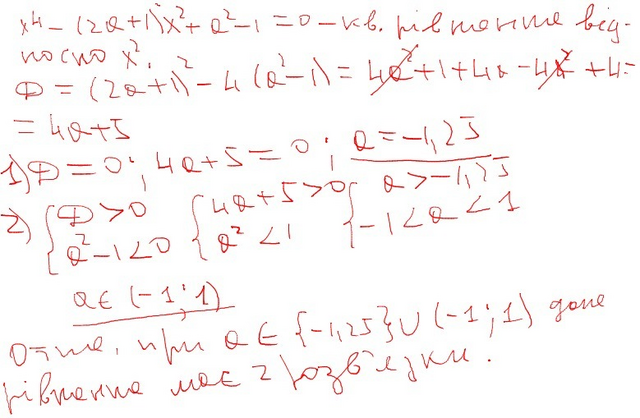 x⁴ - (2a+1)x² + a² - 1 = 0 - кв. рівняння від-
носно x².
D = (2a+1)² - 4(a²-1) = 4a² + 1 + 4a - 4a² + 4 =
= 4a+5
1) D = 0; 4a+5 = 0; a = -1,25
2) { D > 0 { 4a+5 > 0 { a > -1,25
a² - 1 < 0 a² < 1 -1 < a < 1
a ∈ (-1; 1)
Отже, при a ∈ {-1,25} ∪ (-1; 1) дане
рівняння має 2 розв'язки.